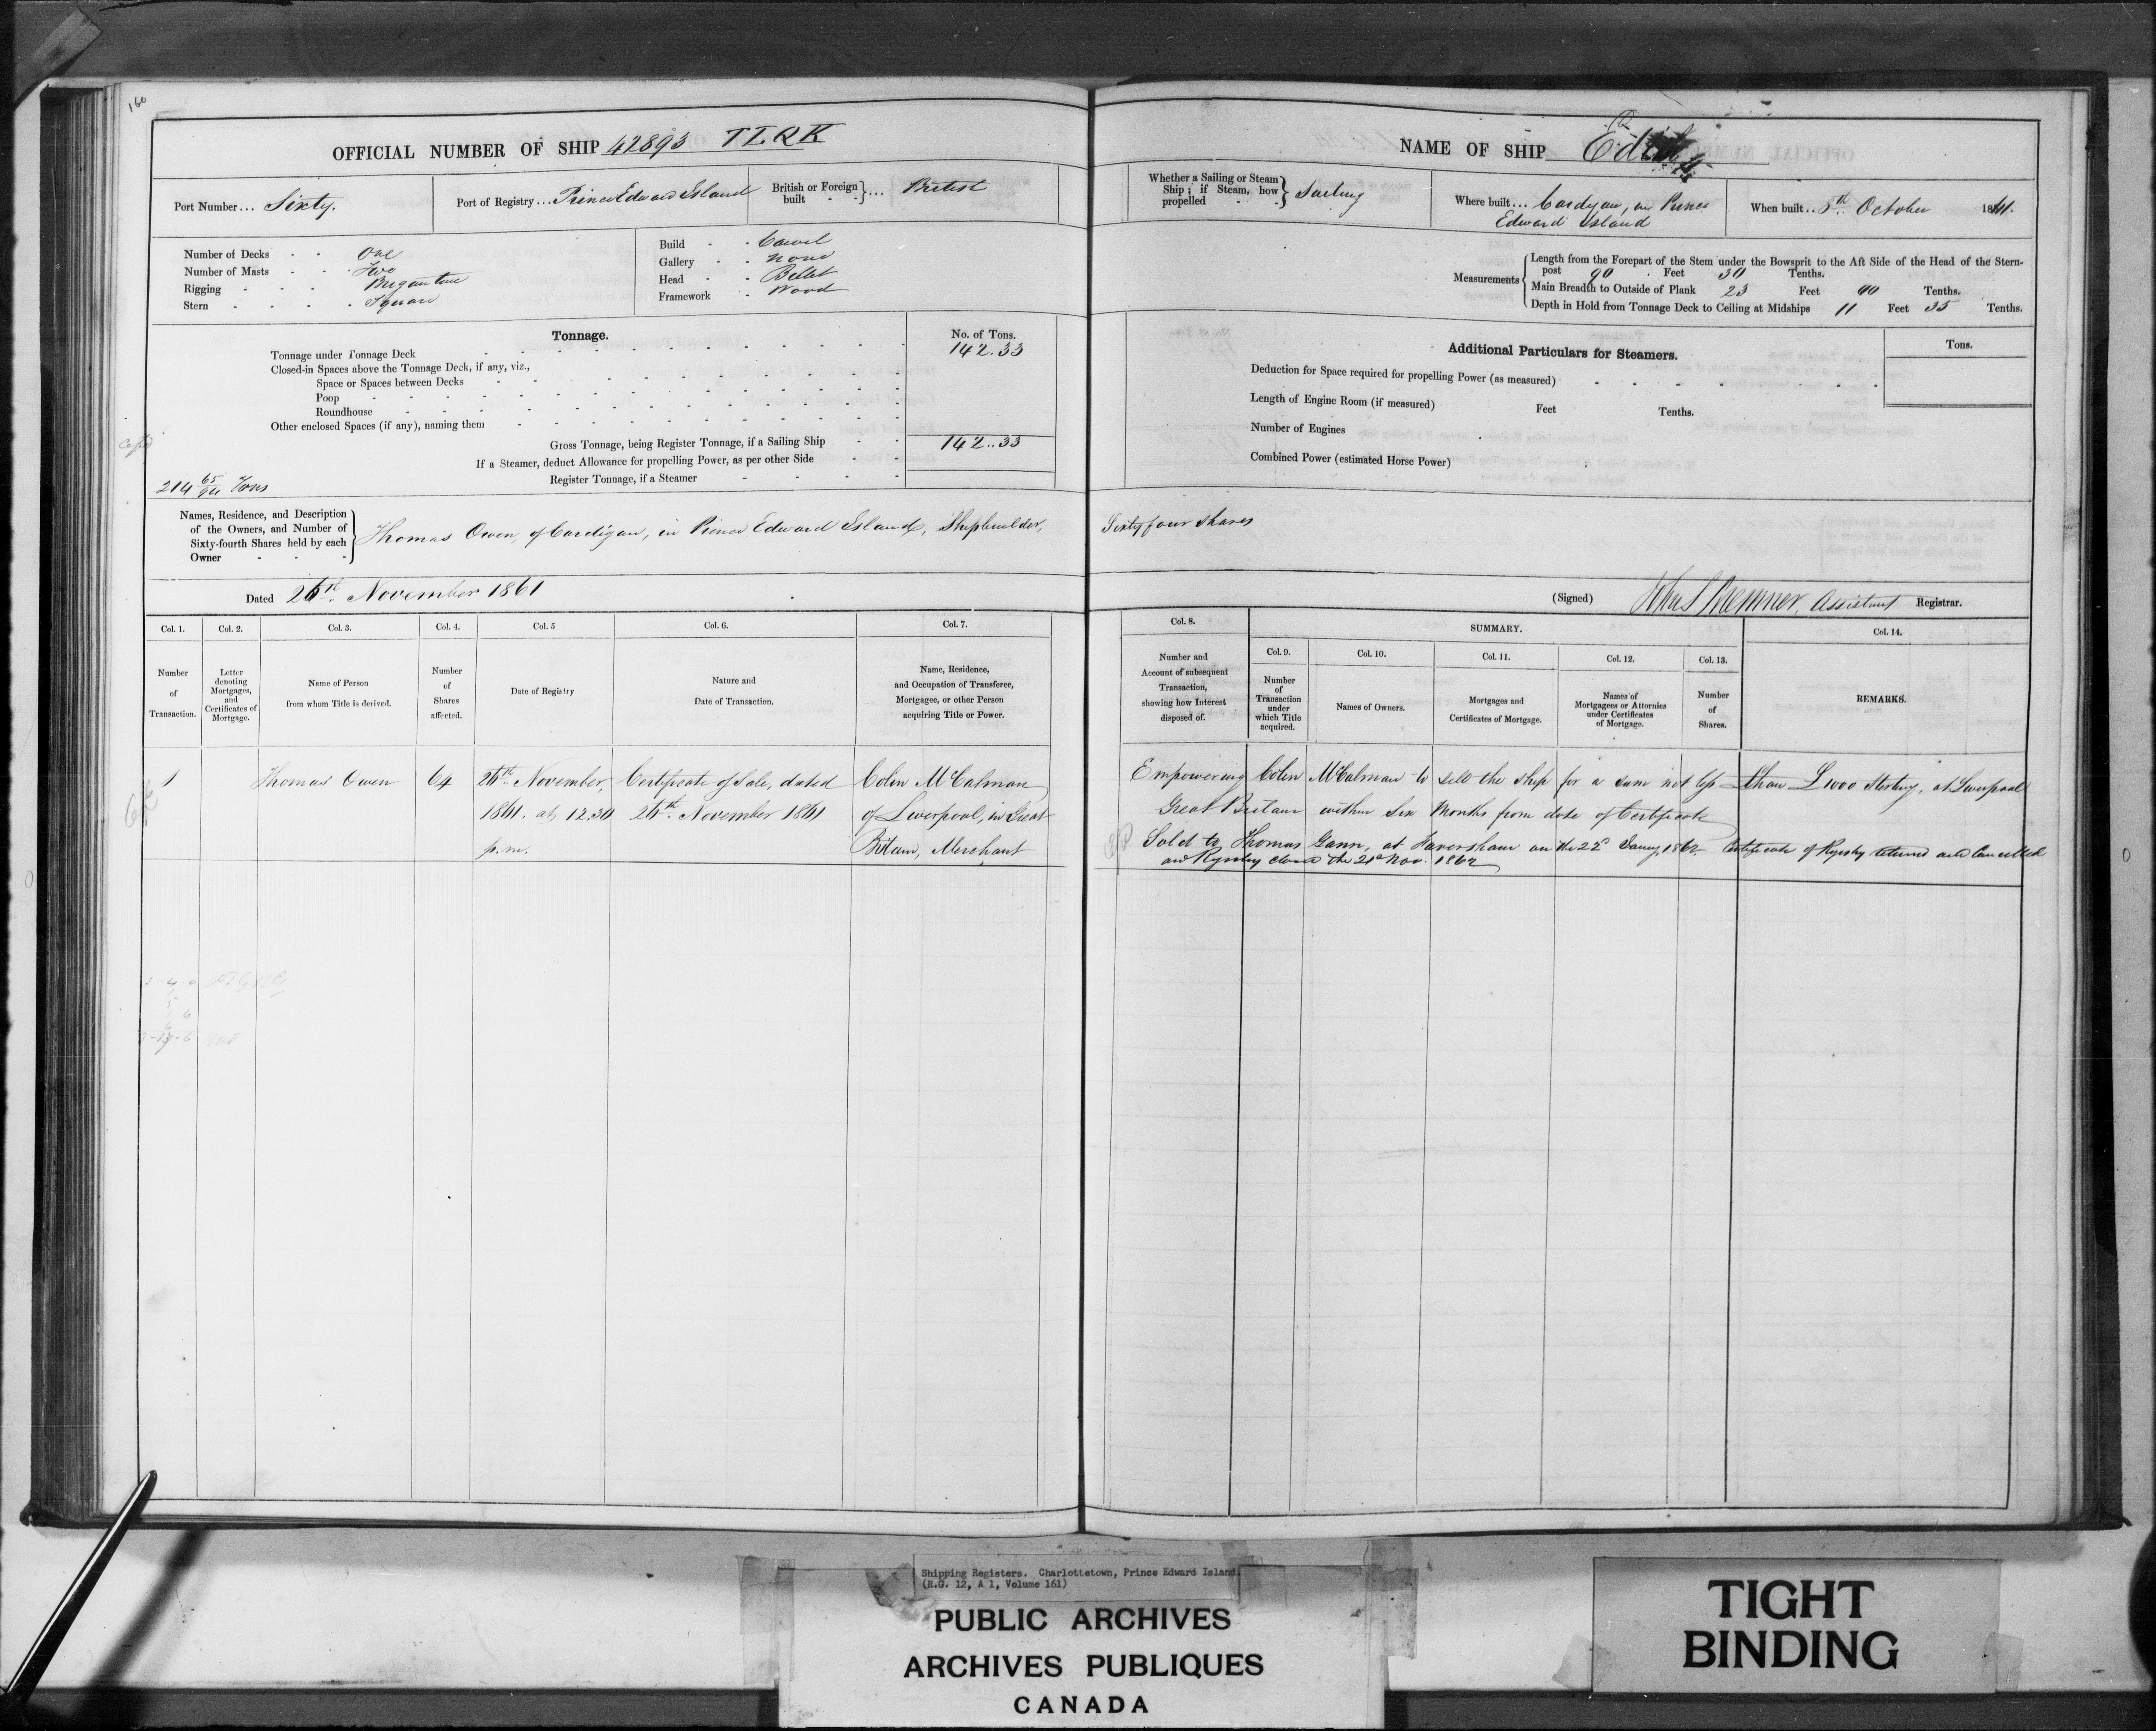 160
OFFICIAL NUMBER OF SHIP 42893 T.L.R.K
Port Number... Sixty.
Port of Registry... Prince Edward Island
British or Foreign built - - }... British
Number of Decks - - One
Number of Masts - - Two
Rigging - - - Brigantine
Stern - - - - Square
Build - - Carvel
Gallery - - None
Head - - Billet
Framework - Wood
Tonnage.
No. of Tons.
Tonnage under Tonnage Deck 142.33
Closed-in Spaces above the Tonnage Deck, if any, viz.,
Space or Spaces between Decks
Poop
Roundhouse
Other enclosed Spaces (if any), naming them
Gross Tonnage, being Register Tonnage, if a Sailing Ship 142..33
If a Steamer, deduct Allowance for propelling Power, as per other Side
Register Tonnage, if a Steamer
214 65/94 Tons
Names, Residence, and Description of the Owners, and Number of Sixty-fourth Shares held by each Owner - - }
Thomas Owen, of Cardigan, in Prince Edward Island, Shipbuilder,
Dated 26th November 1861
Col. 1. Col. 2. Col. 3. Col. 4. Col. 5 Col. 6. Col. 7.
Number of Transaction.
Letter denoting Mortgages, and Certificates of Mortgage.
Name of Person from whom Title is derived.
Number of Shares affected.
Date of Registry
Nature and Date of Transaction.
Name, Residence, and Occupation of Transferee, Mortgagee, or other Person acquiring Title or Power.
1 Thomas Owen 64 26th November, Certificate of Sale, dated Colin McCalman
1861. at 12.30 26th November 1861 of Liverpool, in Great
p.m. Britain, Merchant
NAME OF SHIP
Whether a Sailing or Steam Ship; if Steam, how propelled - - } Sailing
Where built... Cardigan, in Prince
Edward Island
When built.. 8th October 1861.
Measurements
Length from the Forepart of the Stem under the Bowsprit to the Aft Side of the Head of the Stern-
post 90 Feet 30 Tenths.
Main Breadth to Outside of Plank 23 Feet 40 Tenths.
Depth in Hold from Tonnage Deck to Ceiling at Midships 11 Feet 35 Tenths.
Additional Particulars for Steamers.
Tons.
Deduction for Space required for propelling Power (as measured)
Length of Engine Room (if measured) Feet Tenths.
Number of Engines
Combined Power (estimated Horse Power)
Sixty four shares
(Signed) Assistant Registrar.
Col. 8. SUMMARY. Col. 14.
Col. 9. Col. 10. Col. 11. Col. 12. Col. 13.
Number and Account of subsequent Transaction, showing how Interest disposed of.
Number of Transaction under which Title acquired.
Names of Owners.
Mortgages and Certificates of Mortgage.
Names of Mortgagees or Attornies under Certificates of Mortgage.
Number of Shares.
REMARKS.
Empowering Colin McCalman to sell the ship for a sum not less than £1000 Sterling, at Liverpool
Great Britain within Six Months from date of Certificate
Sold to Thomas Gann, at Faversham on the 22d Jany 1862. Certificate of Registry returned and Cancelled
and Registry closed the 21st Nov. 1862
Shipping Registers. Charlottetown, Prince Edward Island.
(R.G. 12, A 1, Volume 161)
PUBLIC ARCHIVES
ARCHIVES PUBLIQUES
CANADA
TIGHT
BINDING